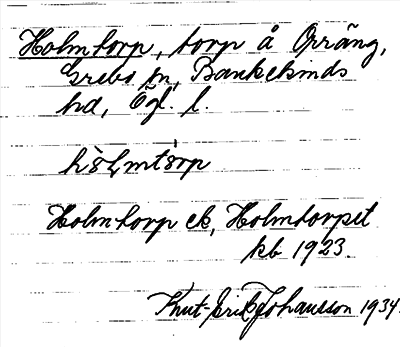 Holmtorp, torp å Orräng,
Grebo sn, Bankekinds
hd, Ögl. l.
hòlmtòrp
Holmtorp ek, Holmtorpet
kb 1923.
Knut-Erik Johansson 1934.